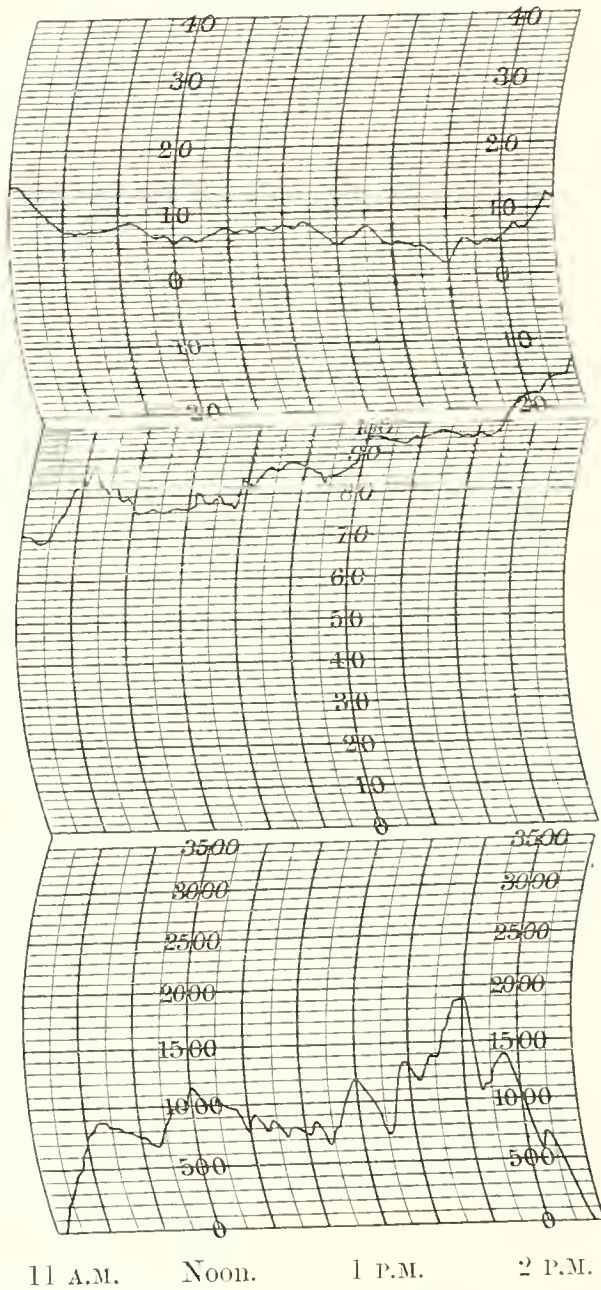 40 40
30 30
20 20
10 10
0 0
10 10
20 20
90
80
70
60
50
40
30
20
10
0
3500 3500
3000 3000
2500 2500
2000 2000
1500 1500
1000 1000
500 500
0 0
11 A.M. Noon. 1 P.M. 2 P.M.